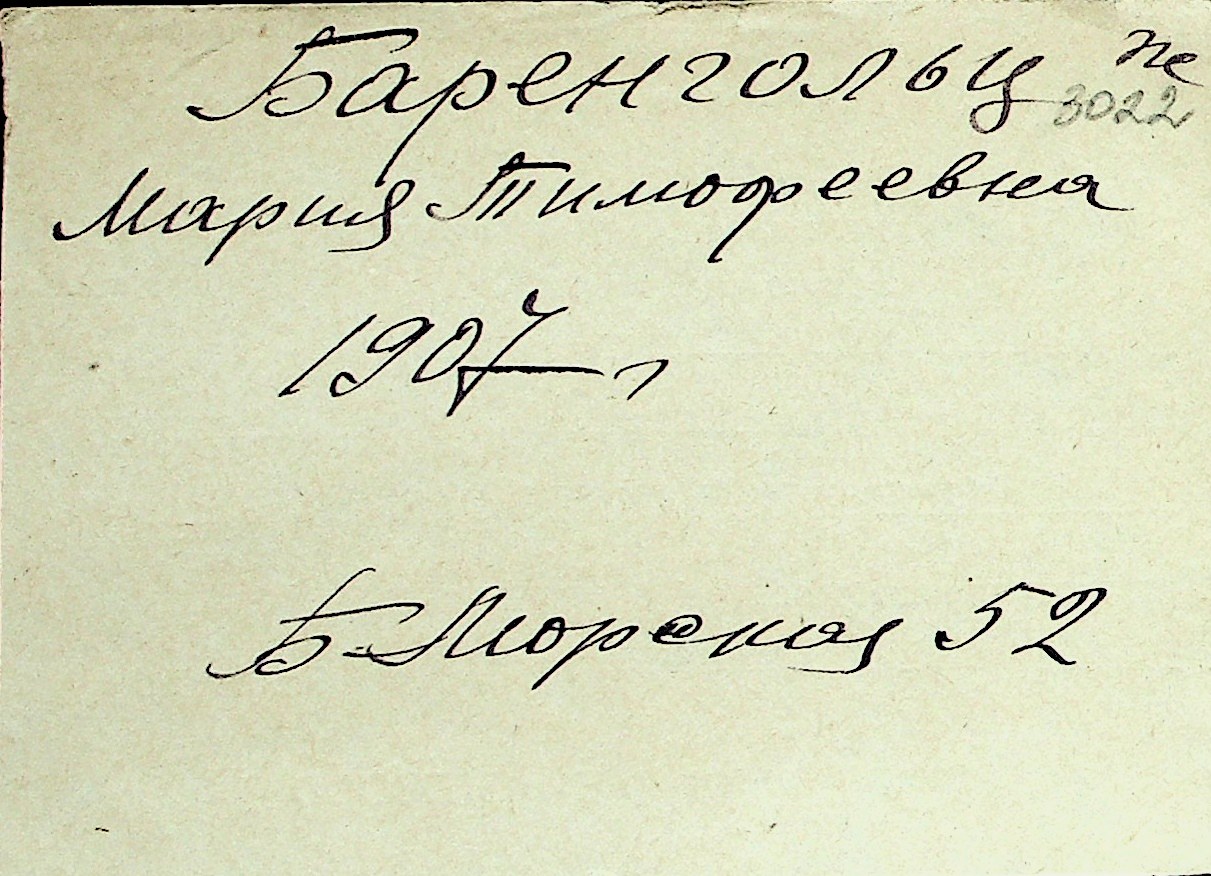 Баренгольц
3022
Мария Тимофеевна
1907 г
Б. Морская 52